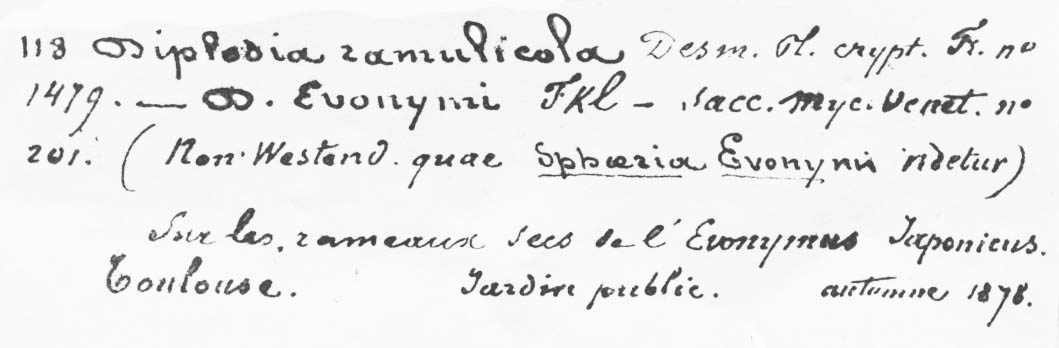 118 Diplodia ramulicola Desm. Pl. crypt. Fr. no
1479. — D. Evonymi Fkl — Sacc. Myc. Venet. no
201. (Non Westend. quae Sphæria Evonymi videtur)
Sur les rameaux secs de l'Evonymus Japonicus.
Toulouse. Jardin public. automne 1878.